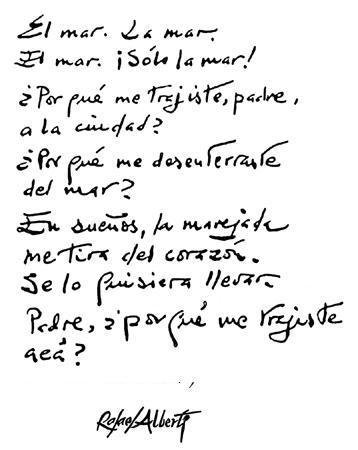 El mar. La mar.
El mar. ¡Sólo la mar!
¿Por qué me trajiste, padre,
a la ciudad?
¿Por qué me desenterraste
del mar?
En sueños, la marejada
me tira del corazón.
Se lo quisiera llevar.
Padre, ¿por qué me trajiste
acá?
Rafael Alberti